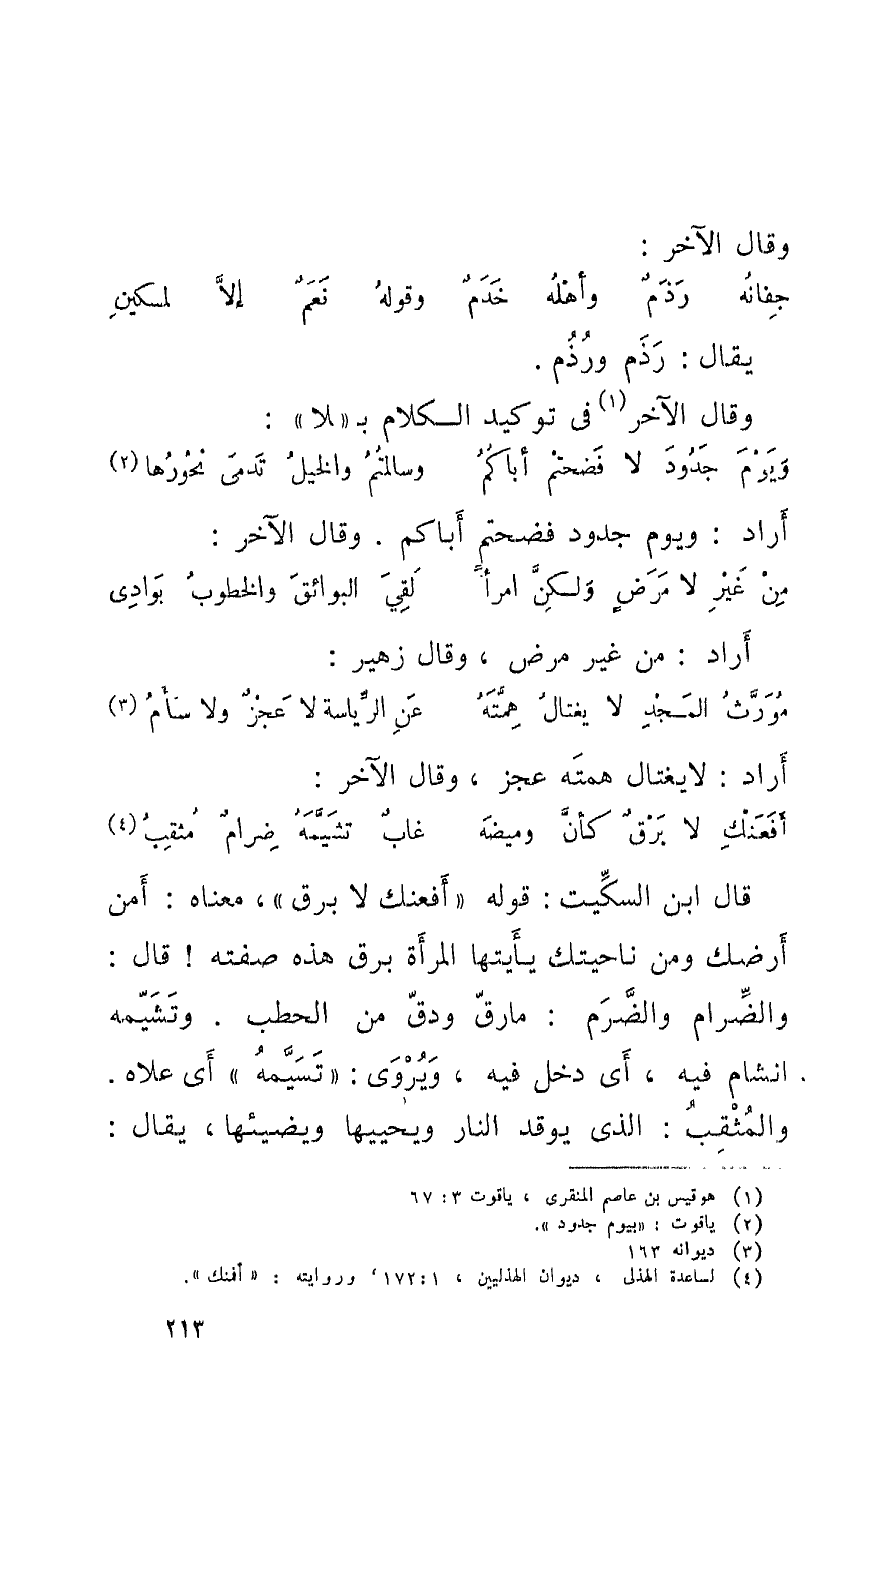 وقال الآخر :
جِفانُه رَذَمٌ وأهْلُه خَدَمٌ وقولهُ نَعَمٌ إلاَّ لمسكينِ
يقال : رَذَم ورُذُم .
وقال الآخر (١) فى توكيد الكلام بـ «لا» :
وَيَوْمَ جَدُودَ لا فَضحتمْ أباكمُ وسالمتُمُ والخيلُ تَدمَى نحُورُها (٢)
أَراد : ويوم جدود فضحتم أَباكم . وقال الآخر :
مِنْ غَيْرِ لا مَرَضٍ وَلكِنَّ امرأً لَقِيَ البوائقَ والخطوبُ بَوَادِى
أَراد : من غير مرض ، وقال زهير :
مُوَرَّثُ المَجْدِ لا يغتالُ هِمَّتَهُ عَنِ الرِّياسة لا عَجْزٌ ولا سَأَمُ (٣)
أَراد : لايغتال همتَه عجز ، وقال الآخر :
أَفَعَنْكِ لا بَرْقٌ كأنَّ وميضَه غابٌ تشيَّمَهُ ضِرامٌ مُثقِبُ (٤)
قال ابن السكِّيت : قوله «أَفعنك لا برق» ، معناه : أَمن
أَرضك ومن ناحيتك يأَيتها المرأَة برق هذه صفته ! قال :
والضِّرام والضَّرَم : مارقّ ودقّ من الحطب . وتَشَيّمه
انشام فيه ، أَى دخل فيه ، وَيُرْوَى : «تَسَيَّمهُ» أَى علاه .
والمُثْقِبُ : الذى يوقد النار ويحييها ويضيئها ، يقال :
(١) هوقيس بن عاصم المنقرى ، ياقوت ٣ : ٦٧
(٢) ياقوت : «بيوم جدود» .
(٣) ديوانه ١٦٣
(٤) لساعدة الهذلى ، ديوان الهذليين ، ١ : ١٧٢ ، وروايته : «أفنك» .
٢١٣